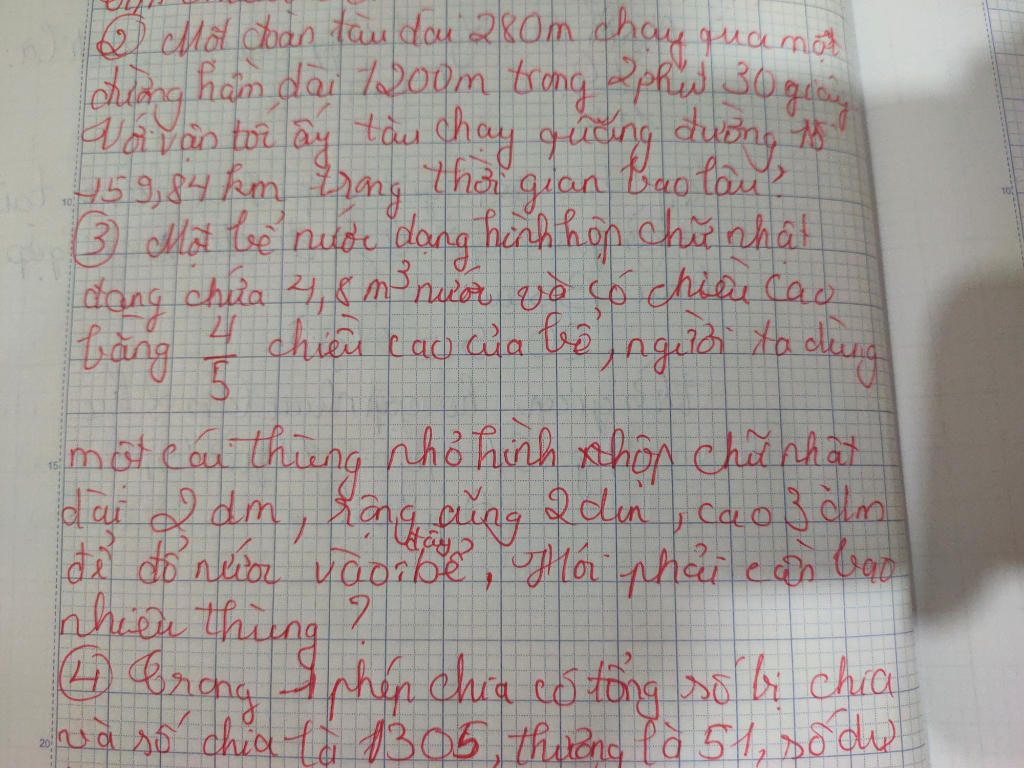 ② Một đoàn tàu dài 280m chạy qua một
đường hầm dài 1200m trong 2phút 30 giây
Với vận tốc ấy tàu chạy quãng đường AB
159,84 km trong thời gian bao lâu?
③ Một bể nước dạng hình hộp chữ nhật
đang chứa 4,8 m³ nước và có chiều cao
bằng 4/5 chiều cao của bể, người ta dùng
một cái thùng nhỏ hình hộp chữ nhật
dài 2 dm, rộng cũng 2 dm, cao 3 dm
để đổ nước vào đầy bể, Hỏi phải cần bao
nhiêu thùng?
④ Trong 1 phép chia có tổng số bị chia
và số chia là 1305, thương là 51, số dư